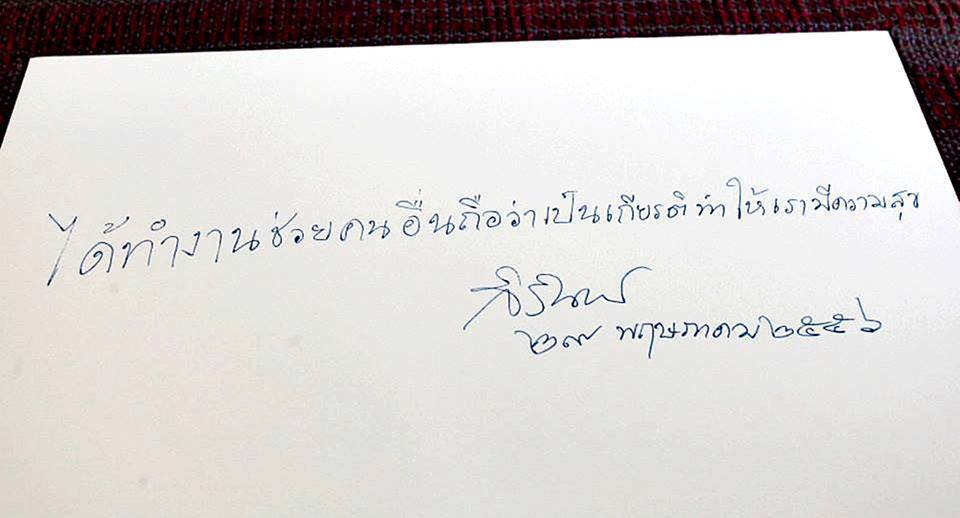 ได้ทำงานช่วยคนอื่นถือว่าเป็นเกียรติ ทำให้เรามีความสุข
สิรินธร
๒๙ พฤษภาคม ๒๕๕๖